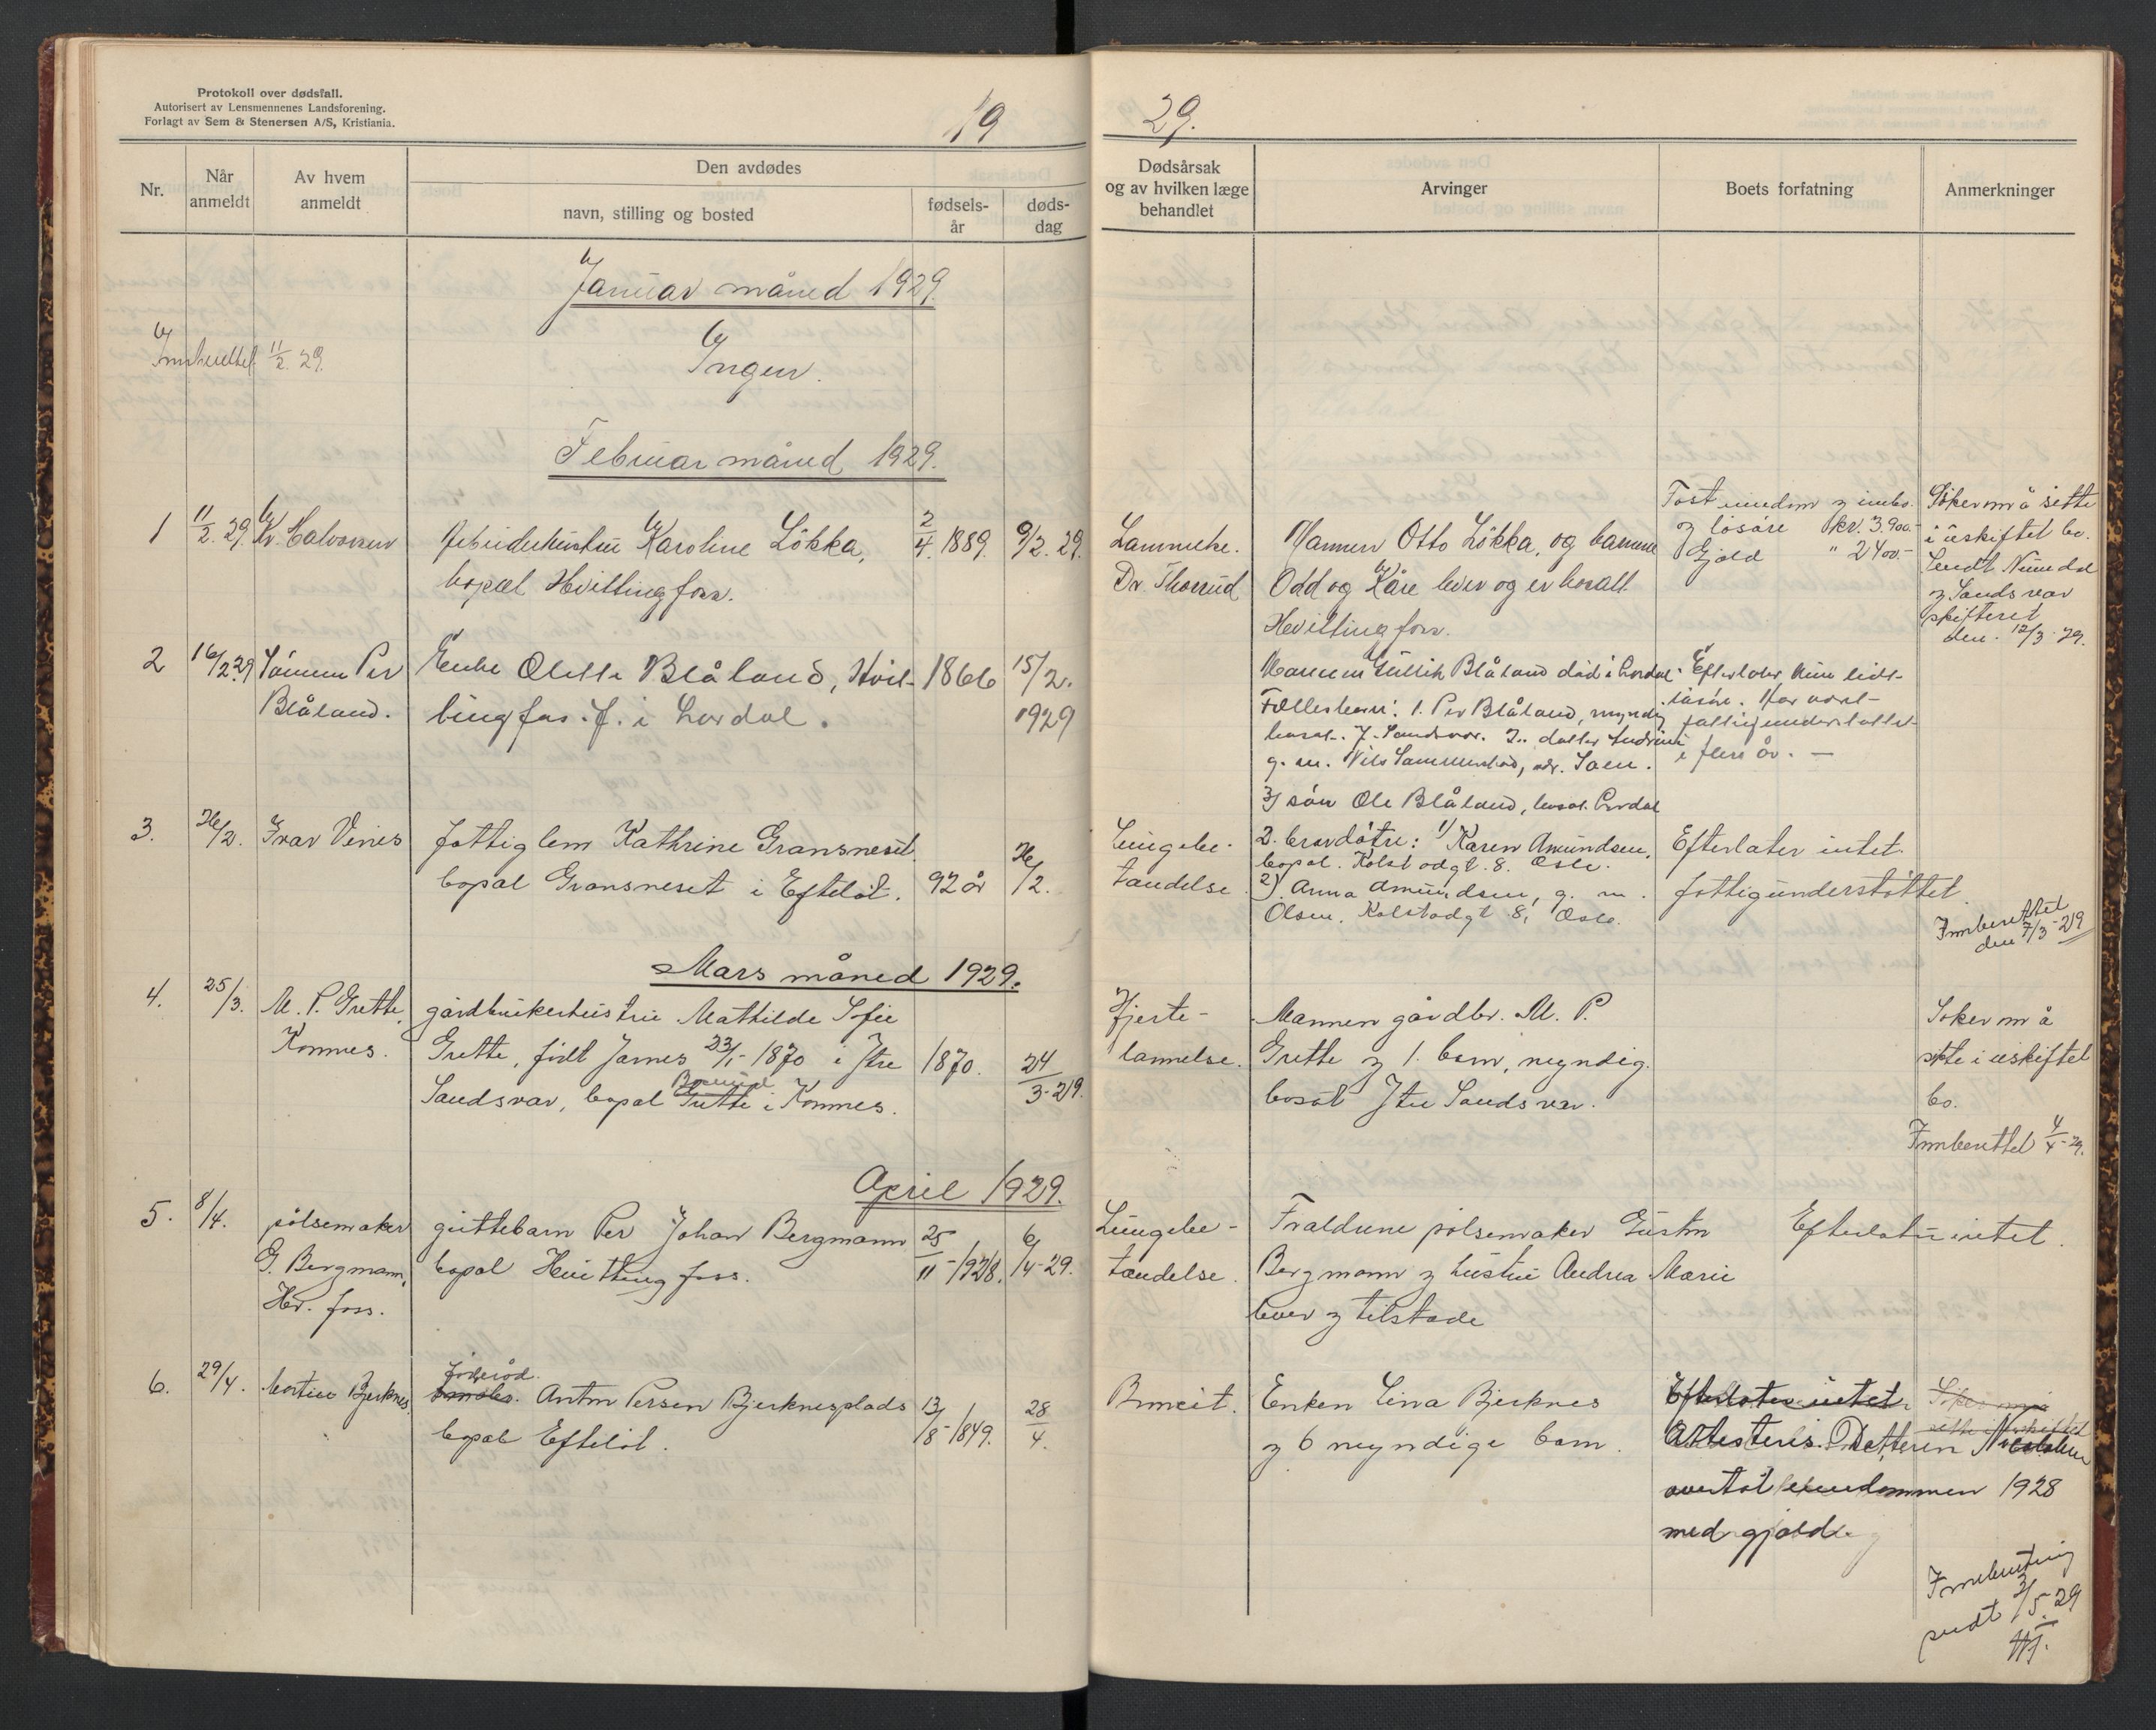 Protokoll over dødsfall.
Autorisert av Lensmennenes Landsforening.
Forlagt av Sem & Stenersen A/S, Kristiania.
19
29.
Nr.
Når anmeldt
Av hvem anmeldt
Den avdødes
navn, stilling og bosted
fødsels-år
døds-dag
Dødsårsak og av hvilken læge behandlet
Arvinger
Boets forfatning
Anmerkninger
Januar måned 1929.
11/2. 29.
Ingen.
Februar måned 1929.
1 11/2. 29. Kr. Halvorsen
Arbeiderhustru Karoline Lökka,
bopæl Hvittingfoss.
2/4 1889. 9/2. 29.
Lammelse.
Dr. Thorrud
Mannen Otto Lökka, og barnene
Odd og Kåre lever og er bosatt
Hvittingfoss.
Fast eiendom og innbo.
og lösöre kr. 3.900.-
Gjeld " 2400.-
Söker om å sitte
i uskiftet bo.
Sendt Numedal
og Sandsvær
skifterett
den. 12/3. 29.
2 16/2 29 Sönnen Per
Blåland.
Enke Blåland, Hvit-
tingfos. f. i Lardal.
1866 15/2.
1929
Mannen Gullik Blåland död i Lardal.
Fellesbarn: 1. Per Blåland, myndig
bosat. Sandsvær. 2. datter
g. m. Nils
3) sön Ole Blåland, bosat. Lardal
Efterlater kun lidt
lösöre. Har vært
fattigunderstöttet
i flere år. —
3. 26/2. Ivar Vines
fattiglem Kathrine Gransneset.
bopæl Gransneset i Eftelöt. 92 år 26/2.
Lungebe-
tændelse.
2. brordötre: 1) Karen Amundsen,
bopæl. Kolstadgt. 8. Oslo.
2) Anna Amundsen, g. m.
Olsen. Kolstadgt 8, Oslo.
Efterlater intet.
fattigunderstöttet.
Innberettet
den 7/3-29
Mars måned 1929.
4. 25/3. M. P. Grette,
Komnes.
gårdbrukerhustru Mathilde Sofie
Grette, födt Jarnes 23/1-1870 i Ytre
Sandsvær, bopæl Grette i Komnes.
1870. 24/3-29.
Hjerte-
lammelse.
Mannen gårdbr. M. P.
Grette og 1. barn, myndig.
bosat Ytre Sandsvær.
Söker om å
sitte i uskiftet
bo.
Innberettet 4/4-29.
April 1929.
5. 8/4. pölsemaker
G. Bergmann,
Hv. foss.
guttebarn Per Johan Bergmann
bopæl Hvittingfoss.
25/11-1928. 6/4-29.
Lungebe-
tændelse.
Foreldrene pölsemaker Gustav
Bergmann og hustru Andrea Marie
lever og tilstede
Efterlater intet.
6. 29/4. Bjerknes.
föderåd.
Anton Persen Bjerknesplads
bopæl Eftelöt.
13/8-1849. 28/4.
Enken Lina Bjerknes
og 6 myndige barn.
Efterlater intet.
Attesteris. Datteren
overtok eiendommen 1928
med gjeld
Söker om å
sitte i uskiftet
Innberetning
sendt 2/5. 29